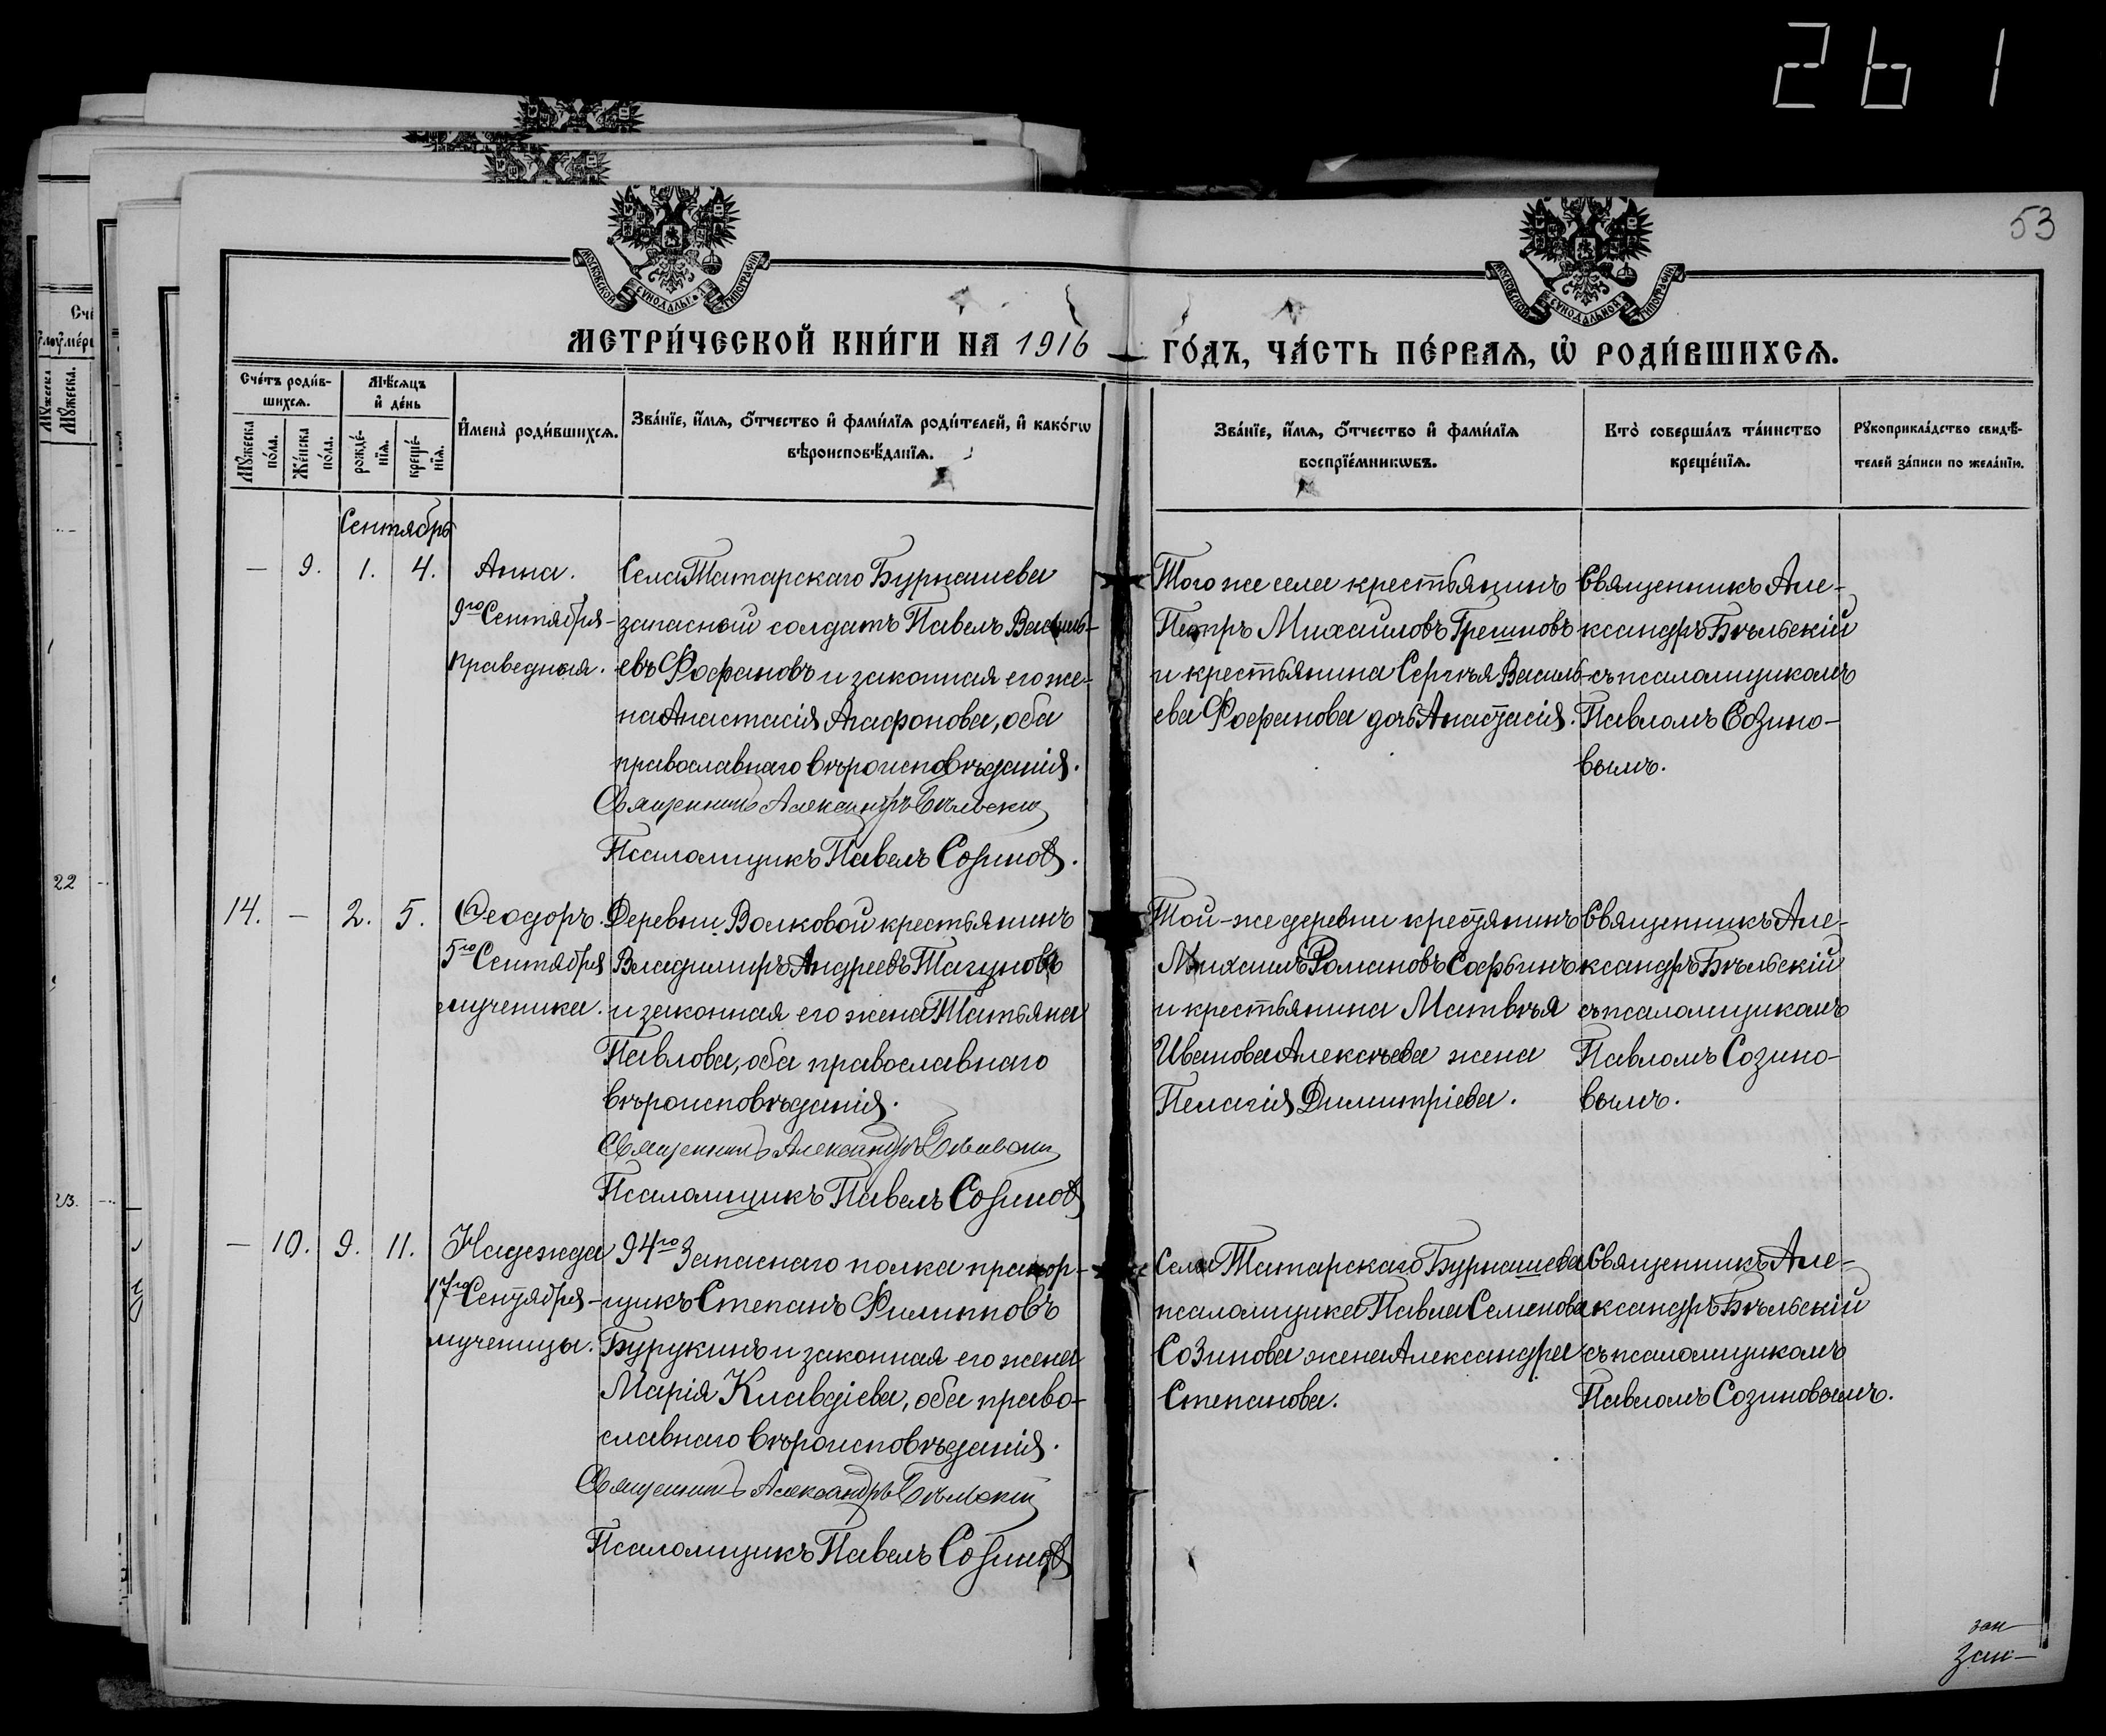 261
53
МОСКОВСКОЙ СѴНОДАЛЬНОЙ ТИПОГРАФІИ
МОСКОВСКОЙ СѴНОДАЛЬНОЙ ТИПОГРАФІИ
МЕТРИ́ЧЕСКОЙ КНИ́ГИ НА 1916 ГО́ДЪ, ЧА́СТЬ ПЕ́РВАѦ, Ѿ РОДИ́ВШИХСѦ.
Сче́тъ роди́в-
шихсѧ.
Мꙋ́жеска по́ла.
Же́нска по́ла.
Мѣ́сѧцъ
и҆ де́нь
рожде́-
нїѧ.
креще́-
нїѧ.
И҆мена̀ роди́вшихсѧ.
Зва́нїе, и҆́мѧ, ѻ҆́тчество и҆ фами́лїѧ роди́телей, и҆ како́гѡ
вѣроисповѣ́данїѧ.
Зва́нїе, и҆́мѧ, ѻ҆́тчество и҆ фами́лїѧ
воспрїе́мникѡвъ.
Кто̀ соверша́лъ та́инство
креще́нїѧ.
Рꙋкоприкла́дство свидѣ́-
телей за́писи по жела́нїю.
Сентябрь
— 9. 1. 4.
Анна.
9го Сентября-
праведныя.
Села Татарскаго Бурнашева
запасный солдатъ Павелъ Василь-
евъ Фофановъ и законная его же-
на Анастасія Агафонова, оба
православнаго вѣроисповѣданія.
Священникъ Александръ Бѣльскій
Псаломщикъ Павелъ Созиновъ.
Того же села крестьянинъ
Петръ Михаиловъ Грешновъ
и крестьянина Сергѣя Василь-
ева Фофанова дочь Анастасія.
Священникъ Але-
ксандръ Бѣльскій
съ псаломщикомъ
Павломъ Созино-
вымъ.
14. — 2. 5.
Ѳеодоръ.
5го Сентября
мученика.
Деревни Волковой крестьянинъ
Владимиръ Андреевъ Тагуновъ
и законная его жена Татьяна
Павлова, оба православнаго
вѣроисповѣданія.
Священникъ Александръ Бѣльскій
Псаломщикъ Павелъ Созиновъ
Той-же деревни крестьянинъ
Михаилъ Романовъ Софьинъ
и крестьянина Матвѣя
Иванова Алексѣева жена
Пелагія Димитріева.
Священникъ Але-
ксандръ Бѣльскій
съ псаломщикомъ
Павломъ Созино-
вымъ.
— 10. 9. 11.
Надежда
17го Сентября-
мученицы.
94го Запаснаго полка прапор-
щикъ Степанъ Филипповъ
Бурукинъ и законная его жена
Марія Клавдіева, оба право-
славнаго вѣроисповѣданія.
Священникъ Александръ Бѣльскій
Псаломщикъ Павелъ Созиновъ
Села Татарскаго Бурнашева
псаломщика Павла Семенова
Созинова жена Александра
Степанова.
Священникъ Але-
ксандръ Бѣльскій
съ псаломщикомъ
Павломъ Созиновымъ.
22